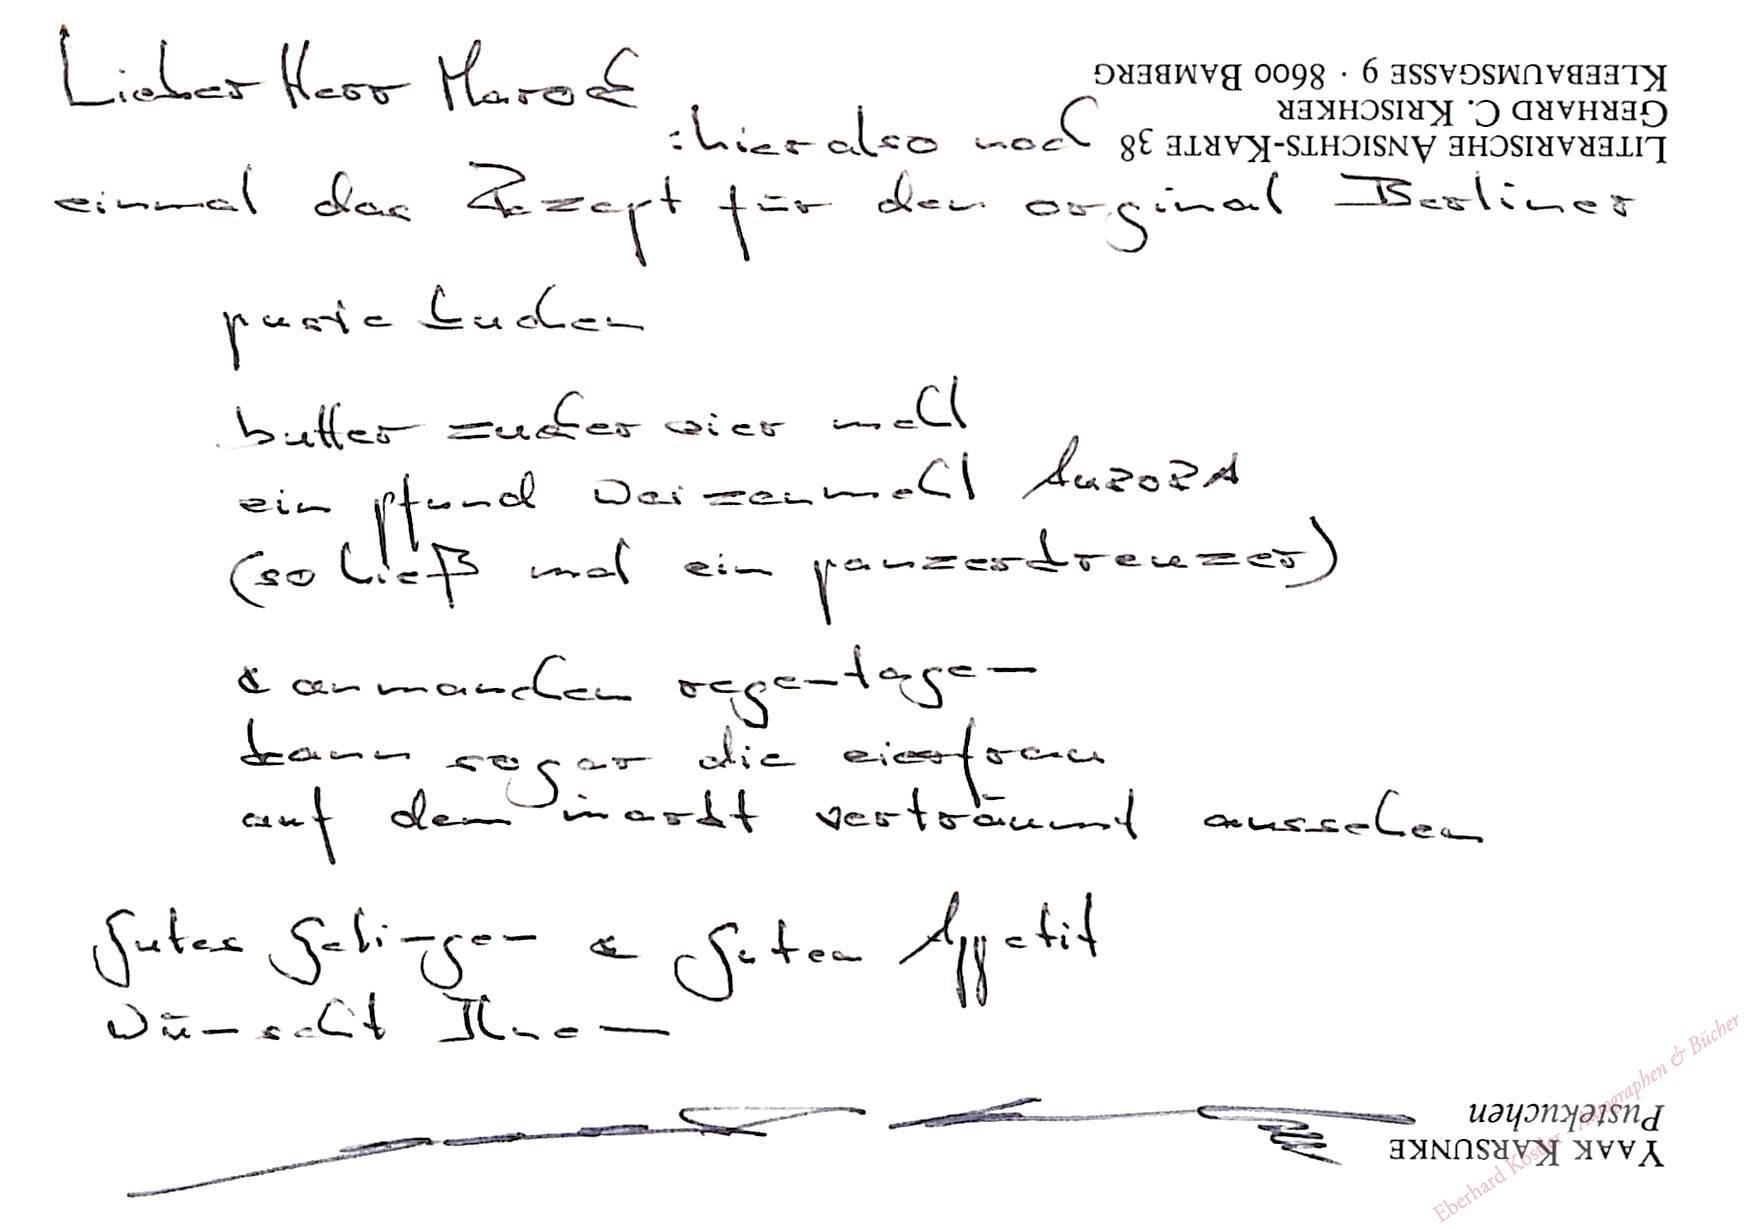 Lieber Herr Marock
: hier also noch
einmal das Rezept für den orginal Berliner
pustekuchen
butter zucker vier mehl
ein pfund weizenmehl AURORA
(so hieß mal ein panzerkreuzer)
& an manchen regentagen
kann sogar die eierfrau
auf dem markt verträumt aussehen
Gutes Gelingen & Guten Appetit
wünscht Ihnen
LITERARISCHE ANSICHTS-KARTE 38
GERHARD C. KRISCHKER
KLEEBAUMSGASSE 9 · 8600 BAMBERG
YAAK KARSUNKE
Pustekuchen
Eberhard Köstler Autographen & Bücher